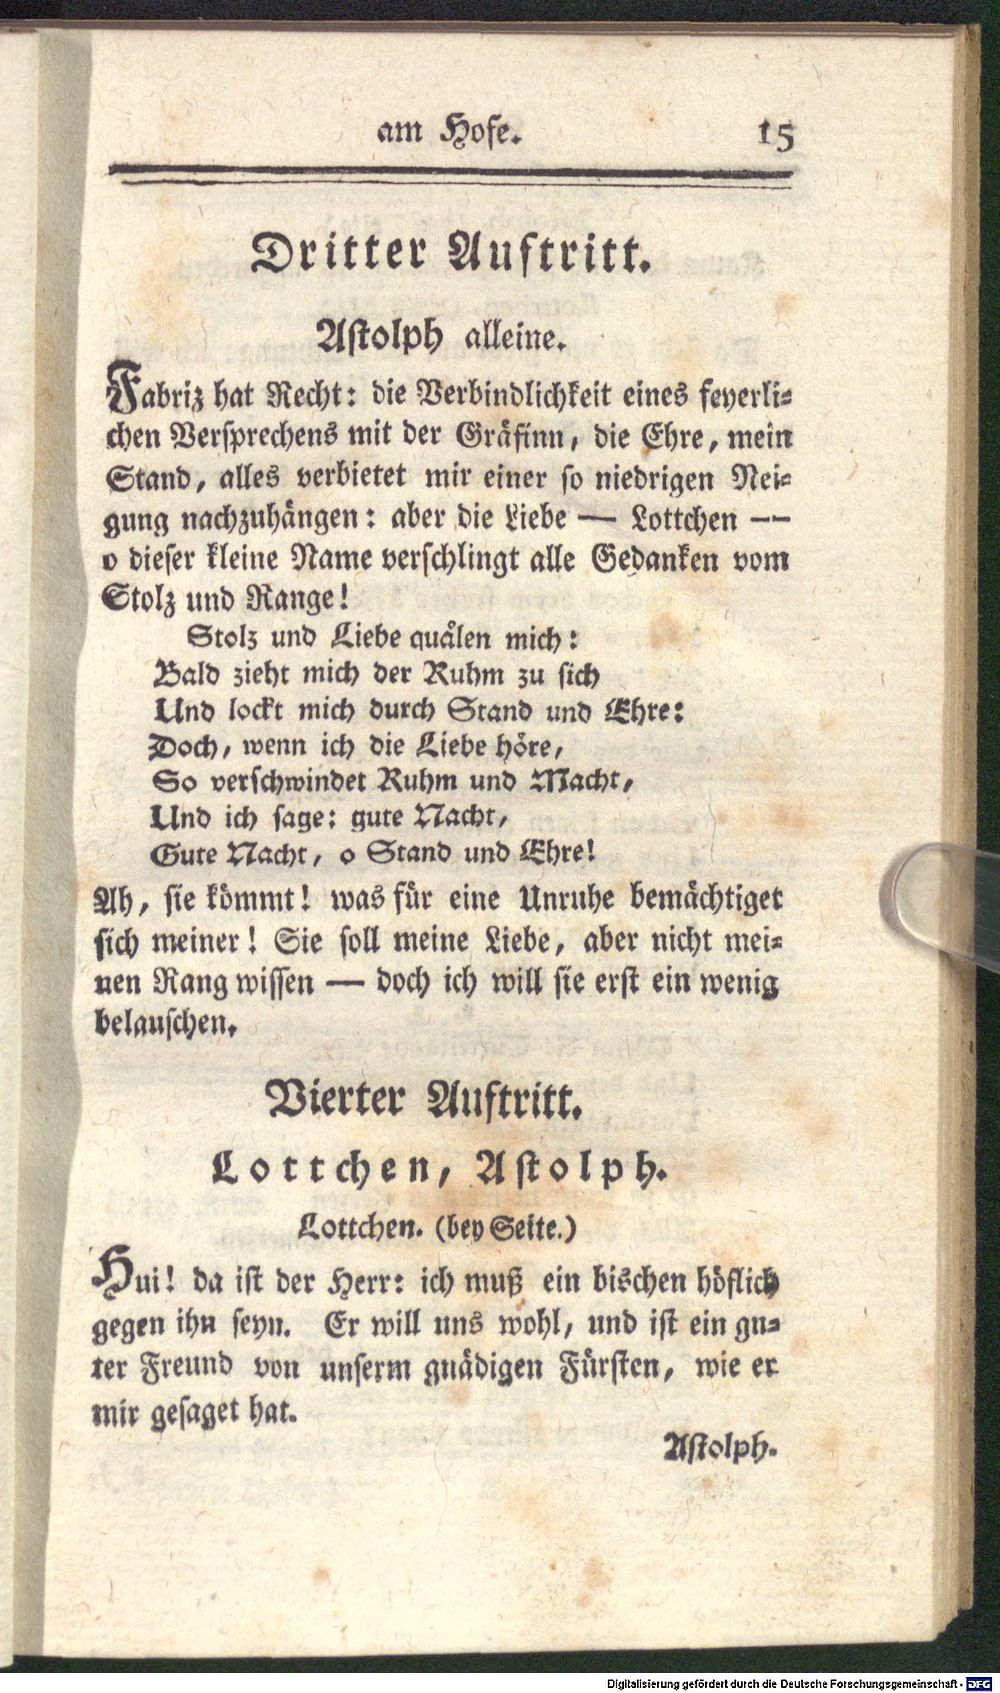 am Hofe. 15
Dritter Auftritt.
Astolph alleine.
Fabriz hat Recht: die Verbindlichkeit eines feyerli-
chen Versprechens mit der Gräfinn, die Ehre, mein
Stand, alles verbietet mir einer so niedrigen Nei-
gung nachzuhängen: aber die Liebe — Lottchen —
o dieser kleine Name verschlingt alle Gedanken vom
Stolz und Range!
Stolz und Liebe quälen mich:
Bald zieht mich der Ruhm zu sich
Und lockt mich durch Stand und Ehre:
Doch, wenn ich die Liebe höre,
So verschwindet Ruhm und Macht,
Und ich sage: gute Nacht,
Gute Nacht, o Stand und Ehre!
Ah, sie kömmt! was für eine Unruhe bemächtiget
sich meiner! Sie soll meine Liebe, aber nicht mei-
nen Rang wissen — doch ich will sie erst ein wenig
belauschen.
Vierter Auftritt.
Lottchen, Astolph.
Lottchen. (bey Seite.)
Hui! da ist der Herr: ich muß ein bischen höflich
gegen ihn seyn. Er will uns wohl, und ist ein gu-
ter Freund von unserm gnädigen Fürsten, wie er
mir gesaget hat.
Astolph.
Digitalisierung gefördert durch die Deutsche Forschungsgemeinschaft - DFG